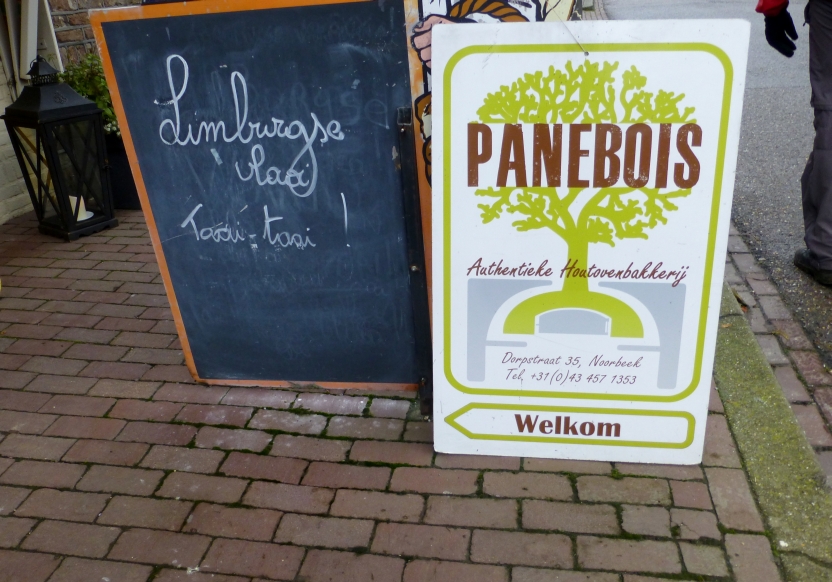 Limburgse
vlaai
Taai-taai !
PANEBOIS
Authentieke Houtovenbakkerij
Dorpstraat 35, Noorbeek
Tel. +31(0)43 457 1353
Welkom